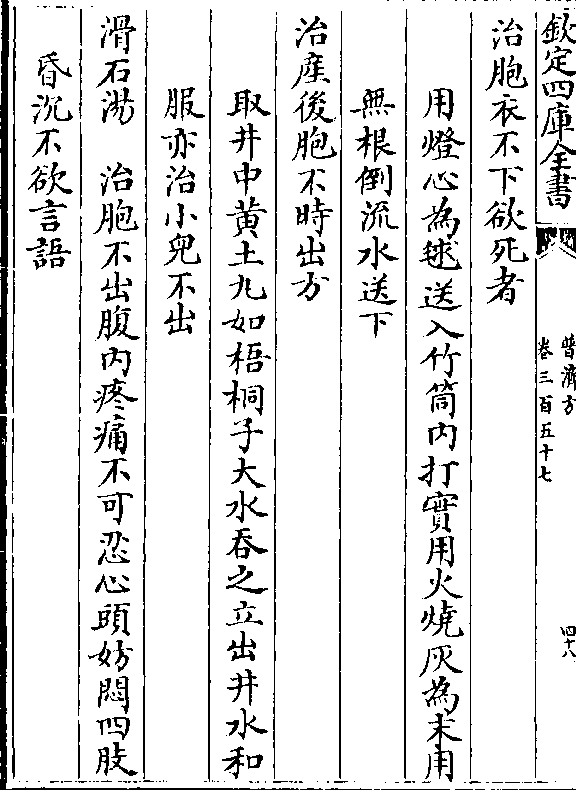 欽定四庫全書
普濟方
卷三百五十七
四十八
治胞衣不下欲死者
用燈心為毬送入竹筒内打實用火燒灰為末用
無根倒流水送下
治産後胞不時出方
取井中黄土丸如梧桐子大水吞之立出井水和
服亦治小兒不出
滑石湯　治胞不出腹内疼痛不可忍心頭妨悶四肢
昏沉不欲言語